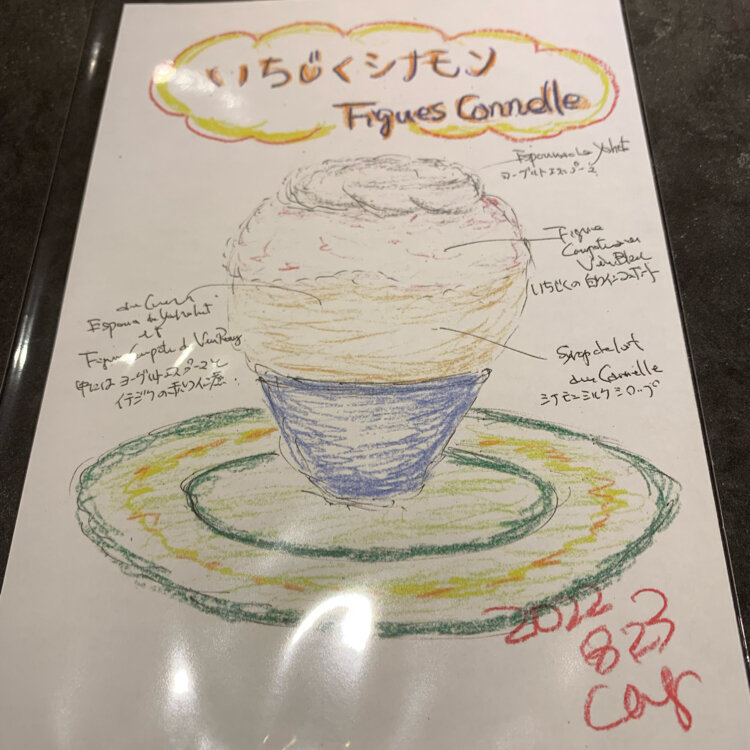 いちじくシナモン
Figues Cannelle
ヨーグルトエスプーマ
Figue
いちじくの白ワインコンポート
Espuma de
et
中には ヨーグルトエスプーマと
イチジクの赤ワイン煮
Sirop de lait
au Cannelle
シナモンミルクシロップ
2022
823